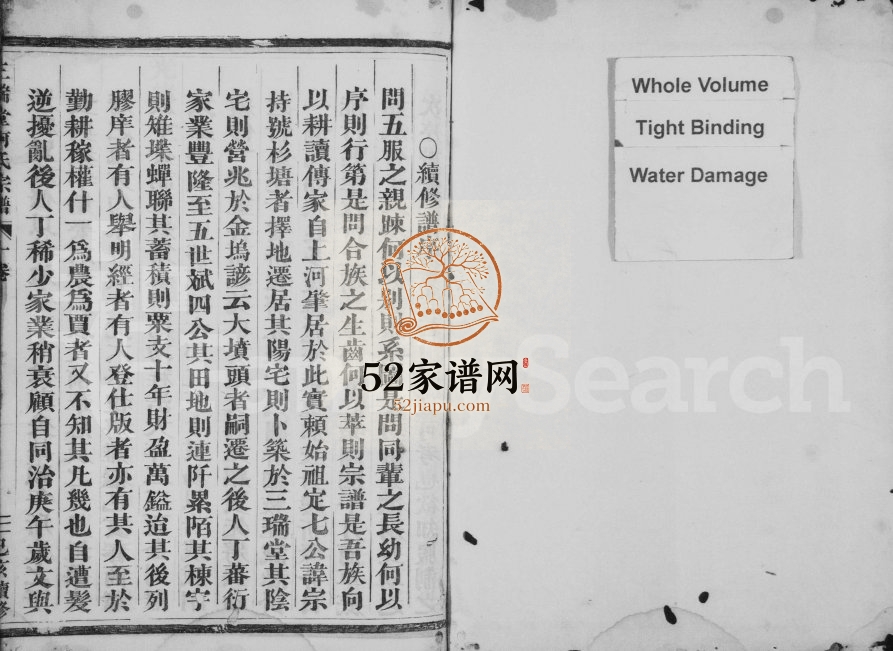 ○續修譜
問五服之親踈何以別則系是問同輩之長幼何以
序則行第是問合族之生齒何以萃則宗譜是吾族向
以耕讀傳家自上河肇居於此實賴始祖定七公諱宗
持號杉塘者擇地遷居其陽宅則卜築於三瑞堂其陰
宅則營兆於金塢諺云大墳頭者嗣遷之後人丁蕃衍
家業豐隆至五世斌四公其田地則連阡累陌其棟宇
則雉堞蟬聯其蓄積則粟支十年財盈萬鎰迨其後列
膠庠者有人舉明經者有人登仕版者亦有其人至於
勤耕稼權什一爲農爲賈者又不知其凡幾也自遭髮
逆擾亂後人丁稀少家業稍衰顧自同治庚午歲文與
氏宗譜
卷
續修
Whole Volume
Tight Binding
Water Damage
Search
52家谱网
52jiapu.com